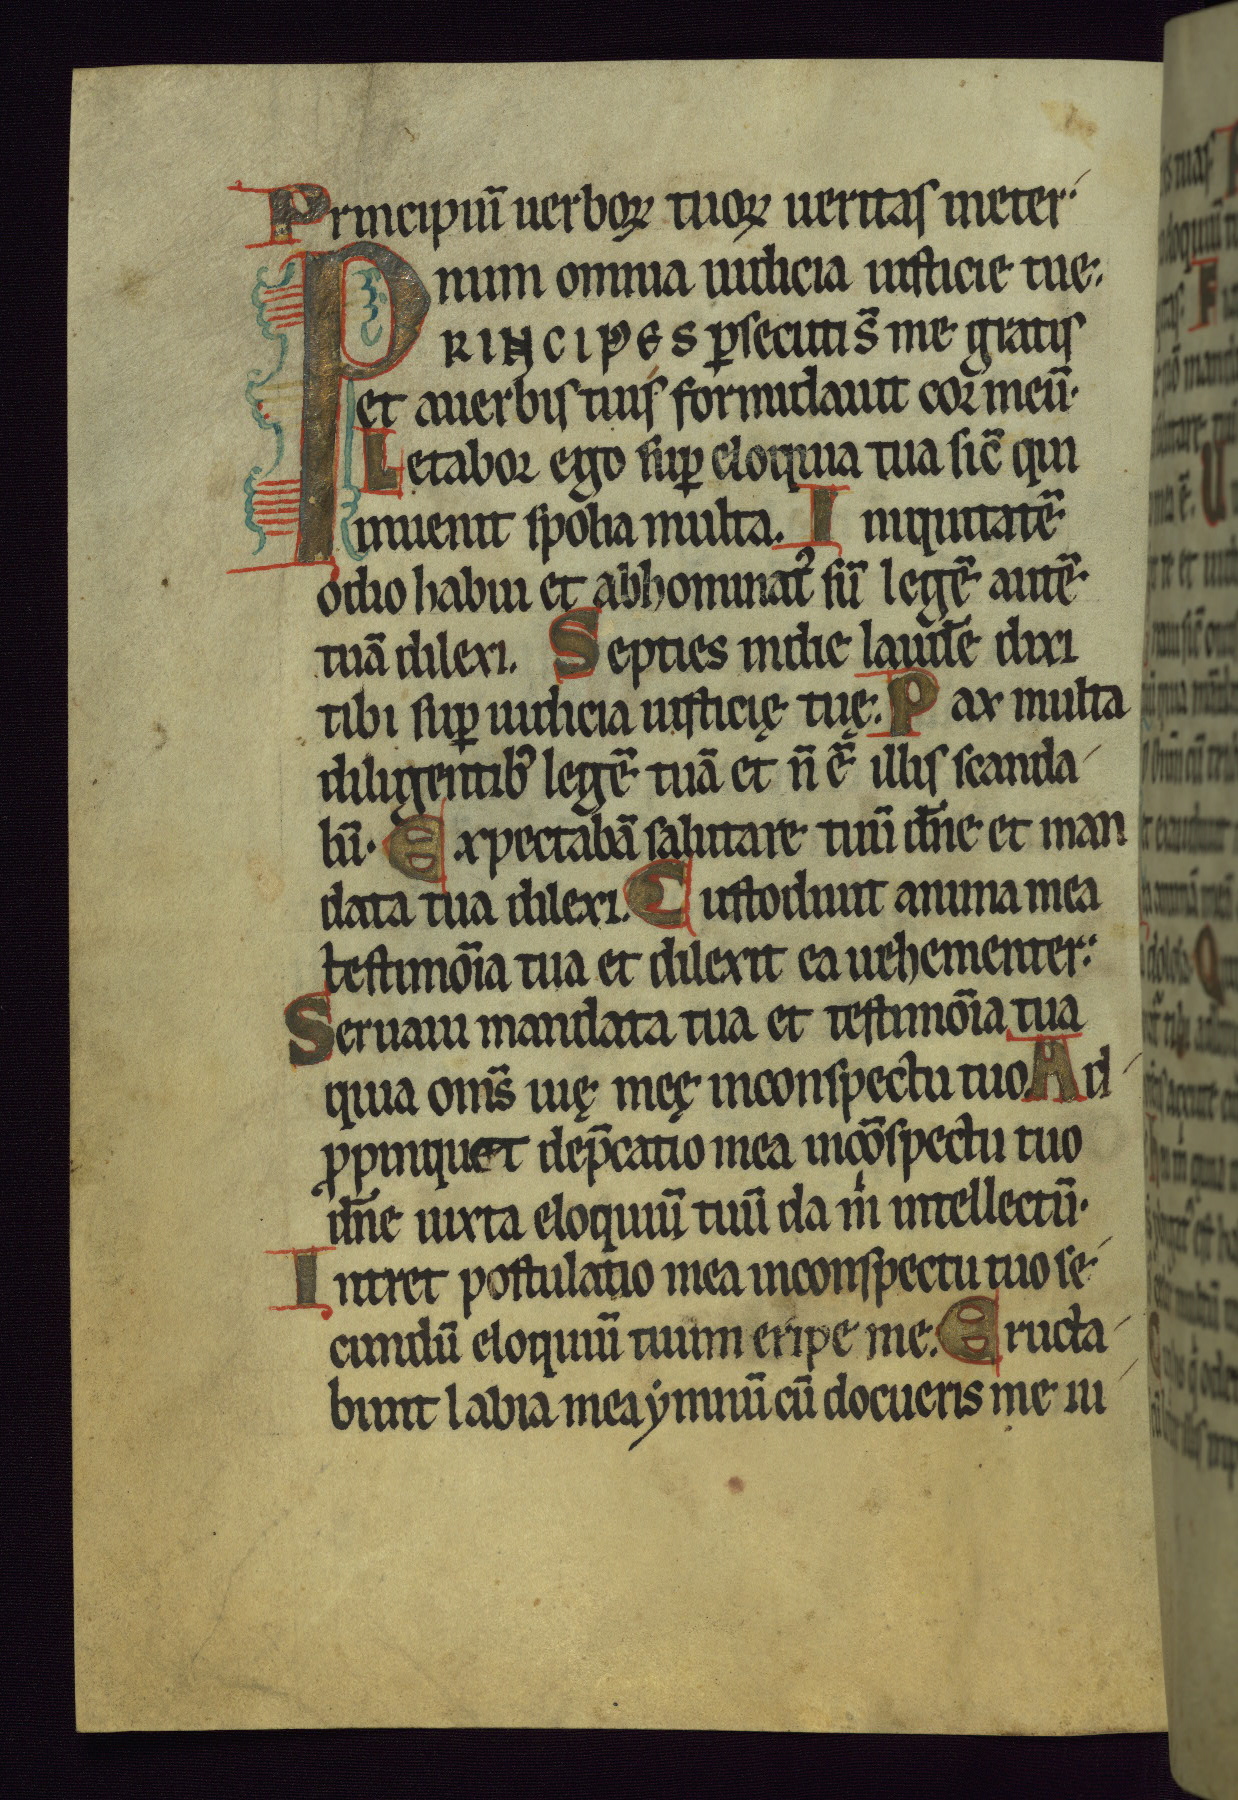 Principiū uerboꝝ tuoꝝ ueritas in eter
num omnia iudicia iusticie tue.
PRINCIPES ꝑsecuti s̄ me gratis
et a uerbis tuis formidauit cor meū.
Letabor ego suꝑ eloquia tua sic̄ qui
inuenit spolia multa. Iniquitatē
odio habui et abhominat᷒ sū legē autē
tuā dilexi. Septies in die laudē dixi
tibi suꝑ iudicia iusticię tuę. Pax multa
diligentib᷒ legē tuā et n̄ ē illis scanda
lū. Expectabā salutare tuū dn̄e et man
data tua dilexi. Custodiuit anima mea
testimōia tua et dilexit ea uehementer.
Seruaui mandata tua et testimōia tua
quia om̄s uię meę in conspectu tuo. Ad
ꝓpinquet dep̄catio mea in cōspectu tuo
dn̄e iuxta eloquiū tuū da m̄ intellectū.
Intret postulatio mea in conspectu tuo se
cundū eloquiū tuum eripe me. Eructa
bunt labia mea ẏmnū cū docueris me iu